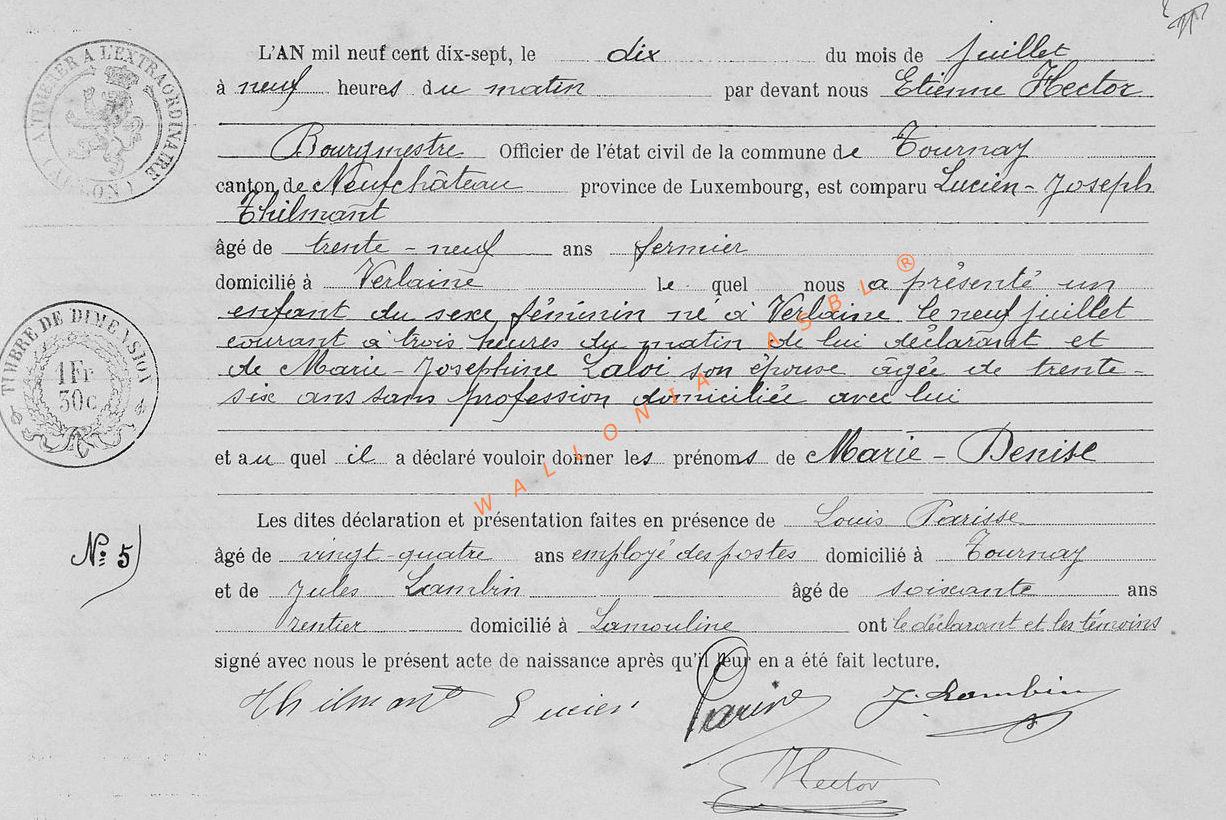 L'AN mil neuf cent dix-sept, le dix du mois de juillet
à neuf heures du matin par devant nous Etienne Hector
Bourgmestre Officier de l'état civil de la commune de Tournay
canton de Neufchâteau province de Luxembourg, est comparu Lucien-Joseph
Thilmant
âgé de trente-neuf ans fermier
domicilié à Verlaine le quel nous a présenté un
enfant du sexe féminin né à Verlaine le neuf juillet
courant à trois heures du matin de lui déclarant et
de Marie-Joséphine Laloi son épouse âgée de trente-
six ans sans profession domiciliée avec lui
et au quel il a déclaré vouloir donner les prénoms de Marie-Denise
Les dites déclaration et présentation faites en présence de Louis Parisse
âgé de vingt-quatre ans employé des postes domicilié à Tournay
et de Jules Lambin âgé de soixante ans
rentier domicilié à Lamouline ont le déclarant et les témoins
signé avec nous le présent acte de naissance après qu'il leur en a été fait lecture.
Thilmant Lucien Parisse J. Lambin
E Hector
A TIMBRER A L'EXTRAORDINAIRE
TIMBRE DE DIMENSION
1Fr
30c
Nº 5
WALLONIA ASBL ®